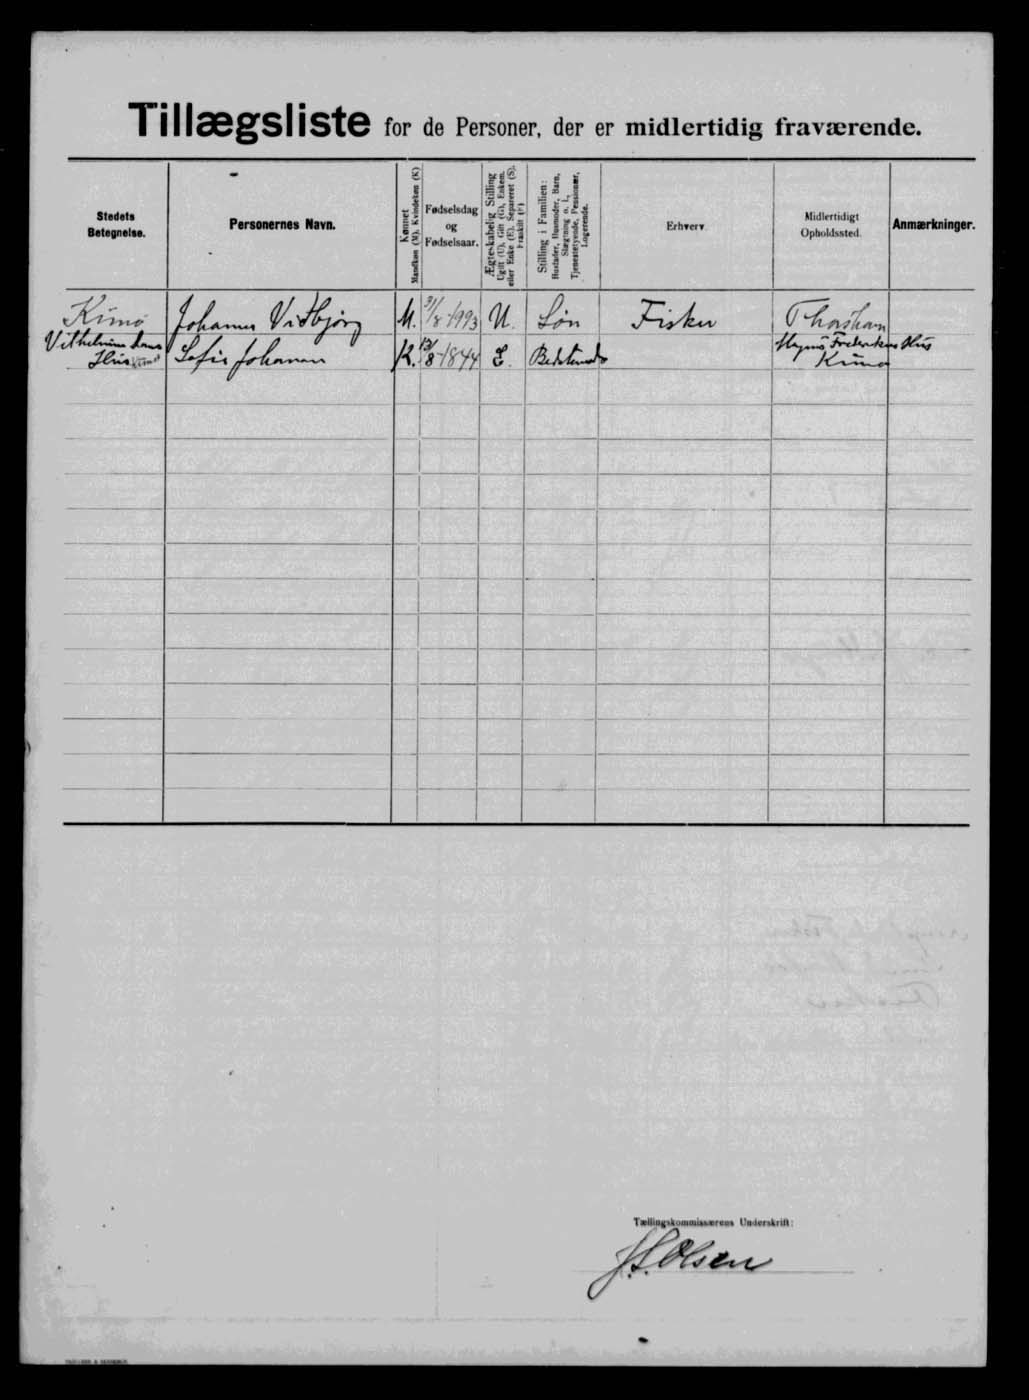 Tillægsliste for de Personer, der er midlertidig fraværende.
Stedets Betegnelse.
Personernes Navn.
Kønnet
Mandkøn (M), Kvindekøn (K)
Fødselsdag
og
Fødselsaar.
Ægteskabelig Stilling
Ugift (U), Gift (G), Enkem. eller Enke (E), Separeret (S), Fraskilt (F)
Stilling i Familien:
Husfader, Husmoder, Barn, Slægtning o. l., Tjenestetyende, Pensionær, Logerende.
Erhverv
Midlertidigt Opholdssted.
Anmærkninger.
Kunø Johannes Vidbjørg M. 31/8 1993 U. Søn Fisker Thorshavn
Vilhelmine Hans Hus Sofie Johansen K. 13/8 1844 E. Magnus Frederiksens Hus
Kunø
Tællingskommissærens Underskrift:
J.S. Olsen